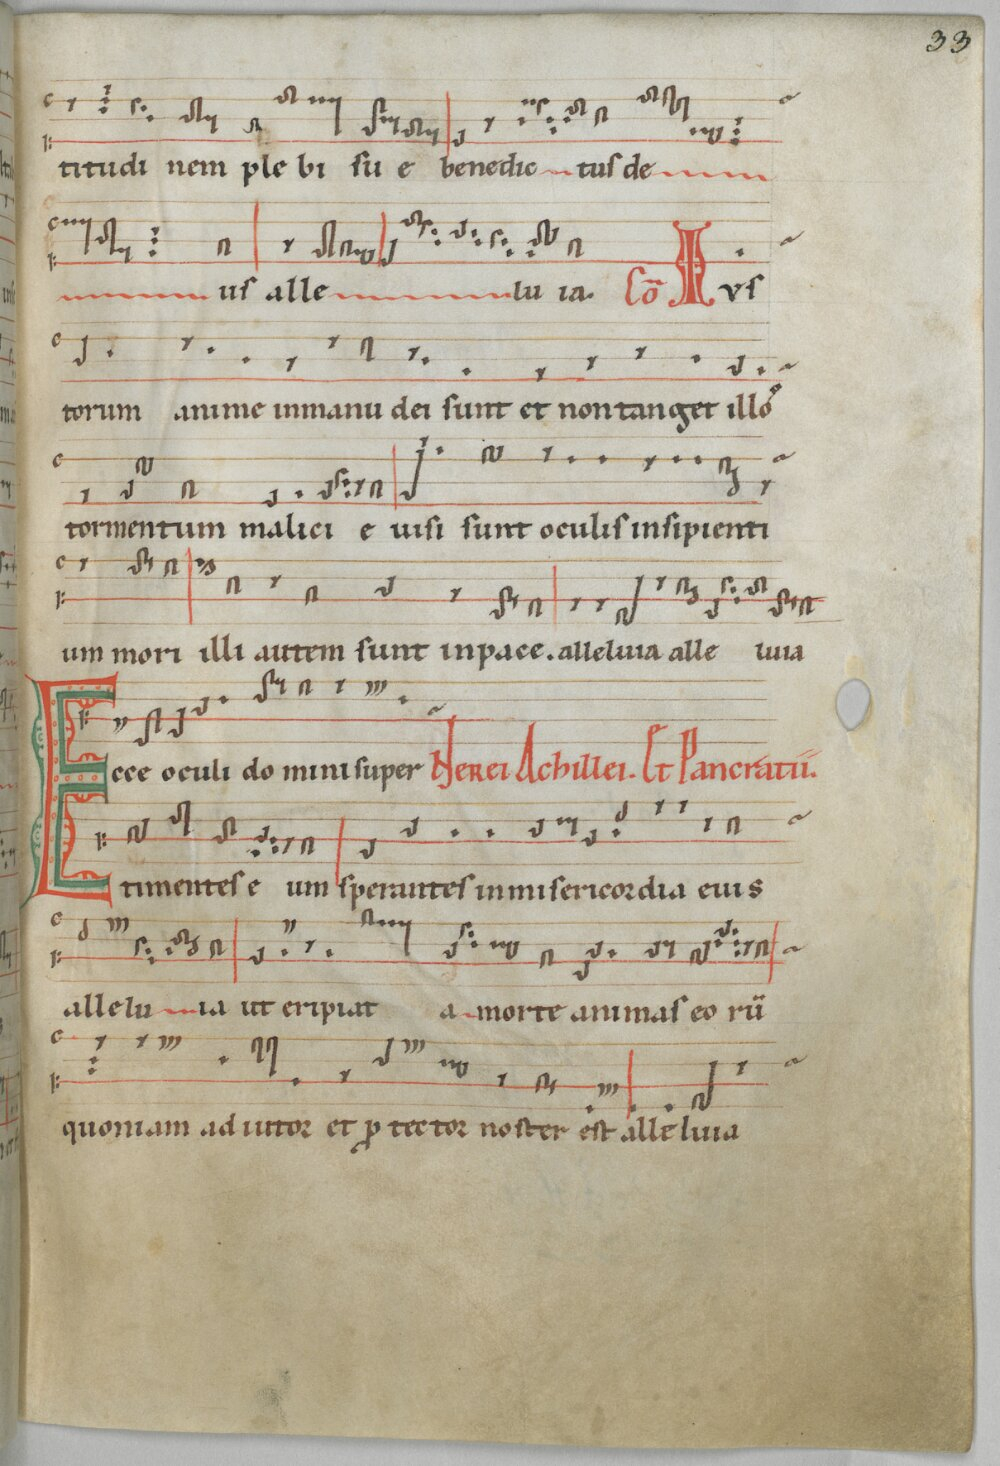 33
titudi nem ple bi su e benedic tus de
us alle lu ia. Cō Ivs
torum anime inmanu dei sunt et nontanget illo
tormentum malici e uisi sunt oculis insipienti
um mori illi autem sunt inpace. alleluia alle luia
Ecce oculi do mini super Nerei Achillei. Et Pancratii.
timentes e um sperantes inmisericordia eius
allelu ia ut eripiat a morte animas eo rū
quoniam ad iutor et ꝓ tector noster est alle luia